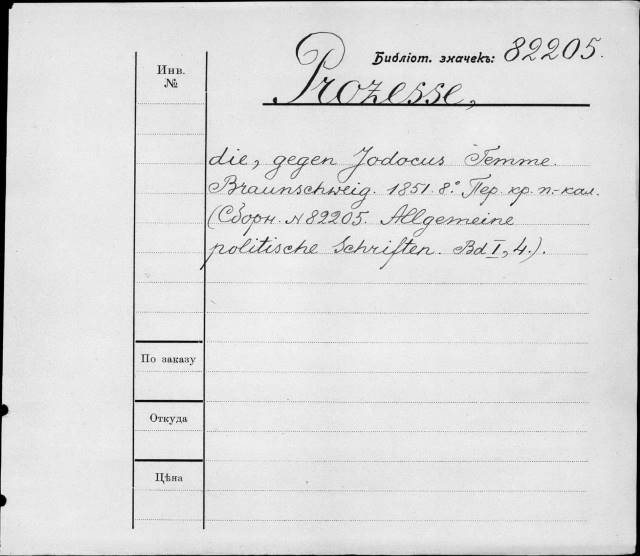 Инв.
№
Библіот. значекъ: 82205.
Prozesse,
die, gegen Jodocus Temme.
Braunschweig. 1851. 8.° Пер. кр. п.-кал.
(Сборн. № 82205. Allgemeine
politische Schriften. Bd I, 4.).
По заказу
Откуда
Цѣна